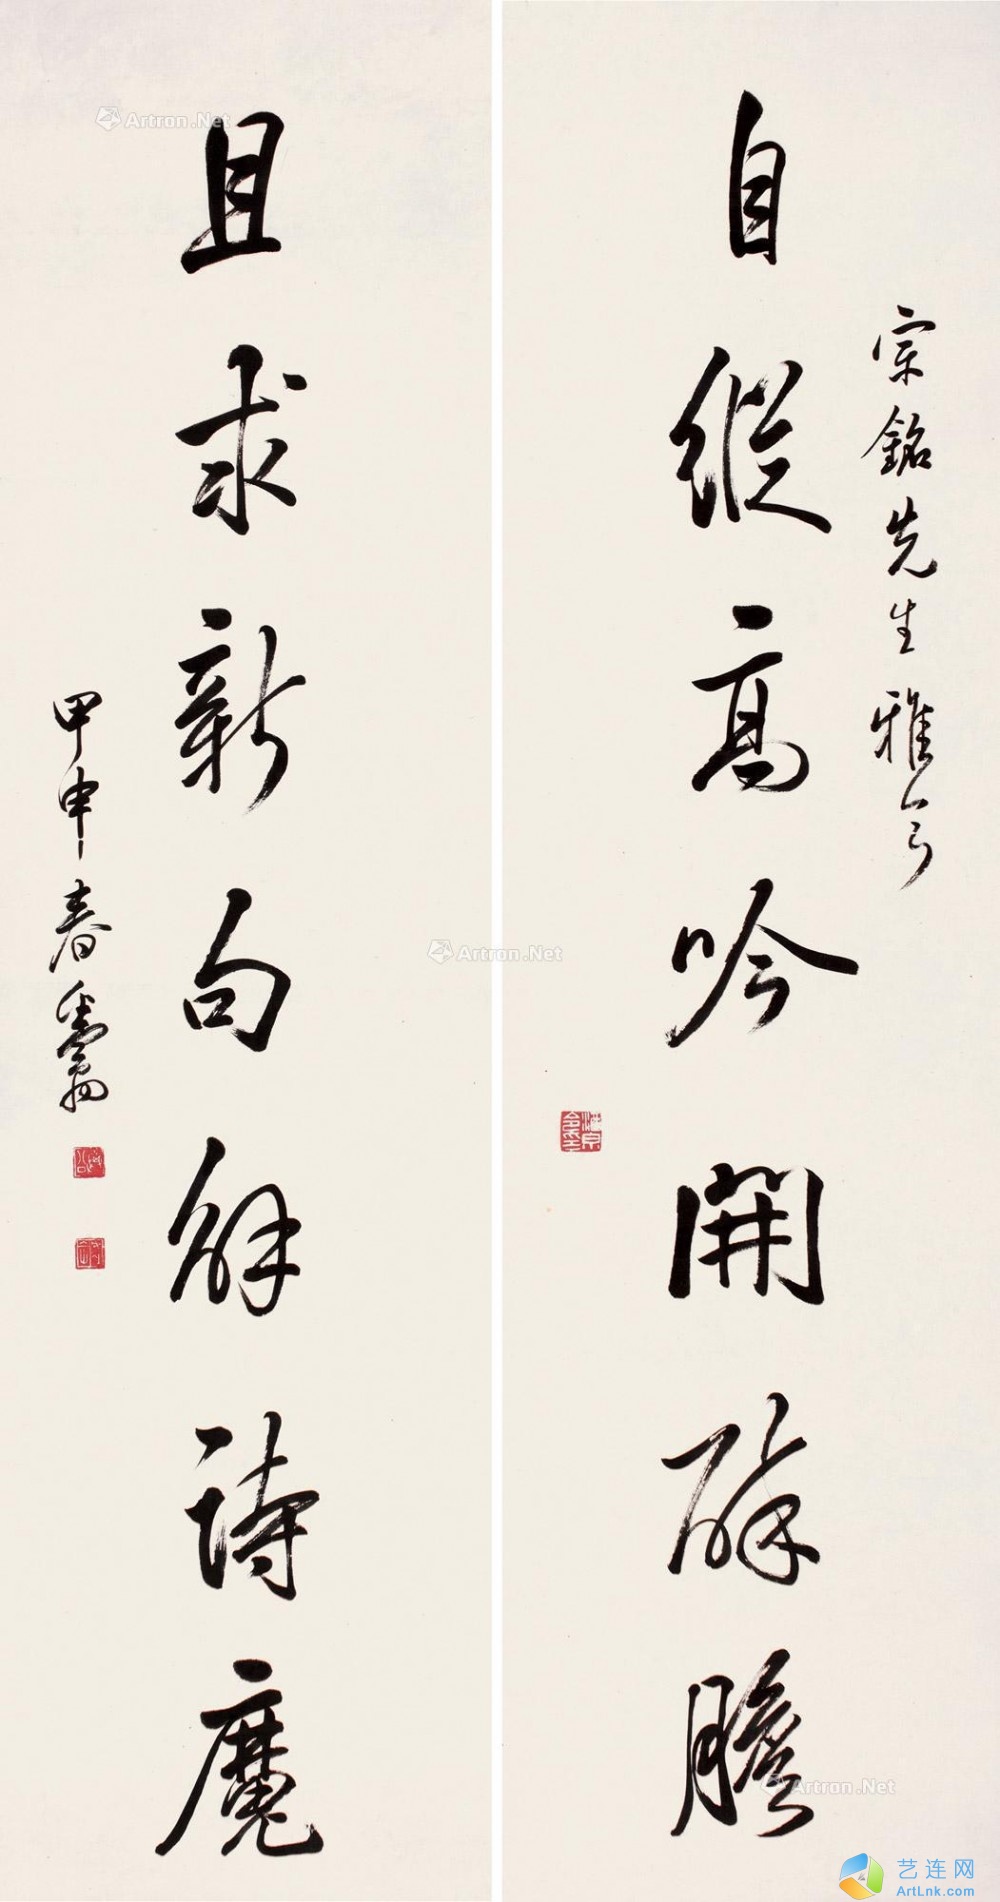 宗銘先生雅令
自縱高吟開醉膽
且求新句解詩魔
甲申春
Artron.Net
Artron.Net
Artron.Net
艺连网
ArtLnk.com